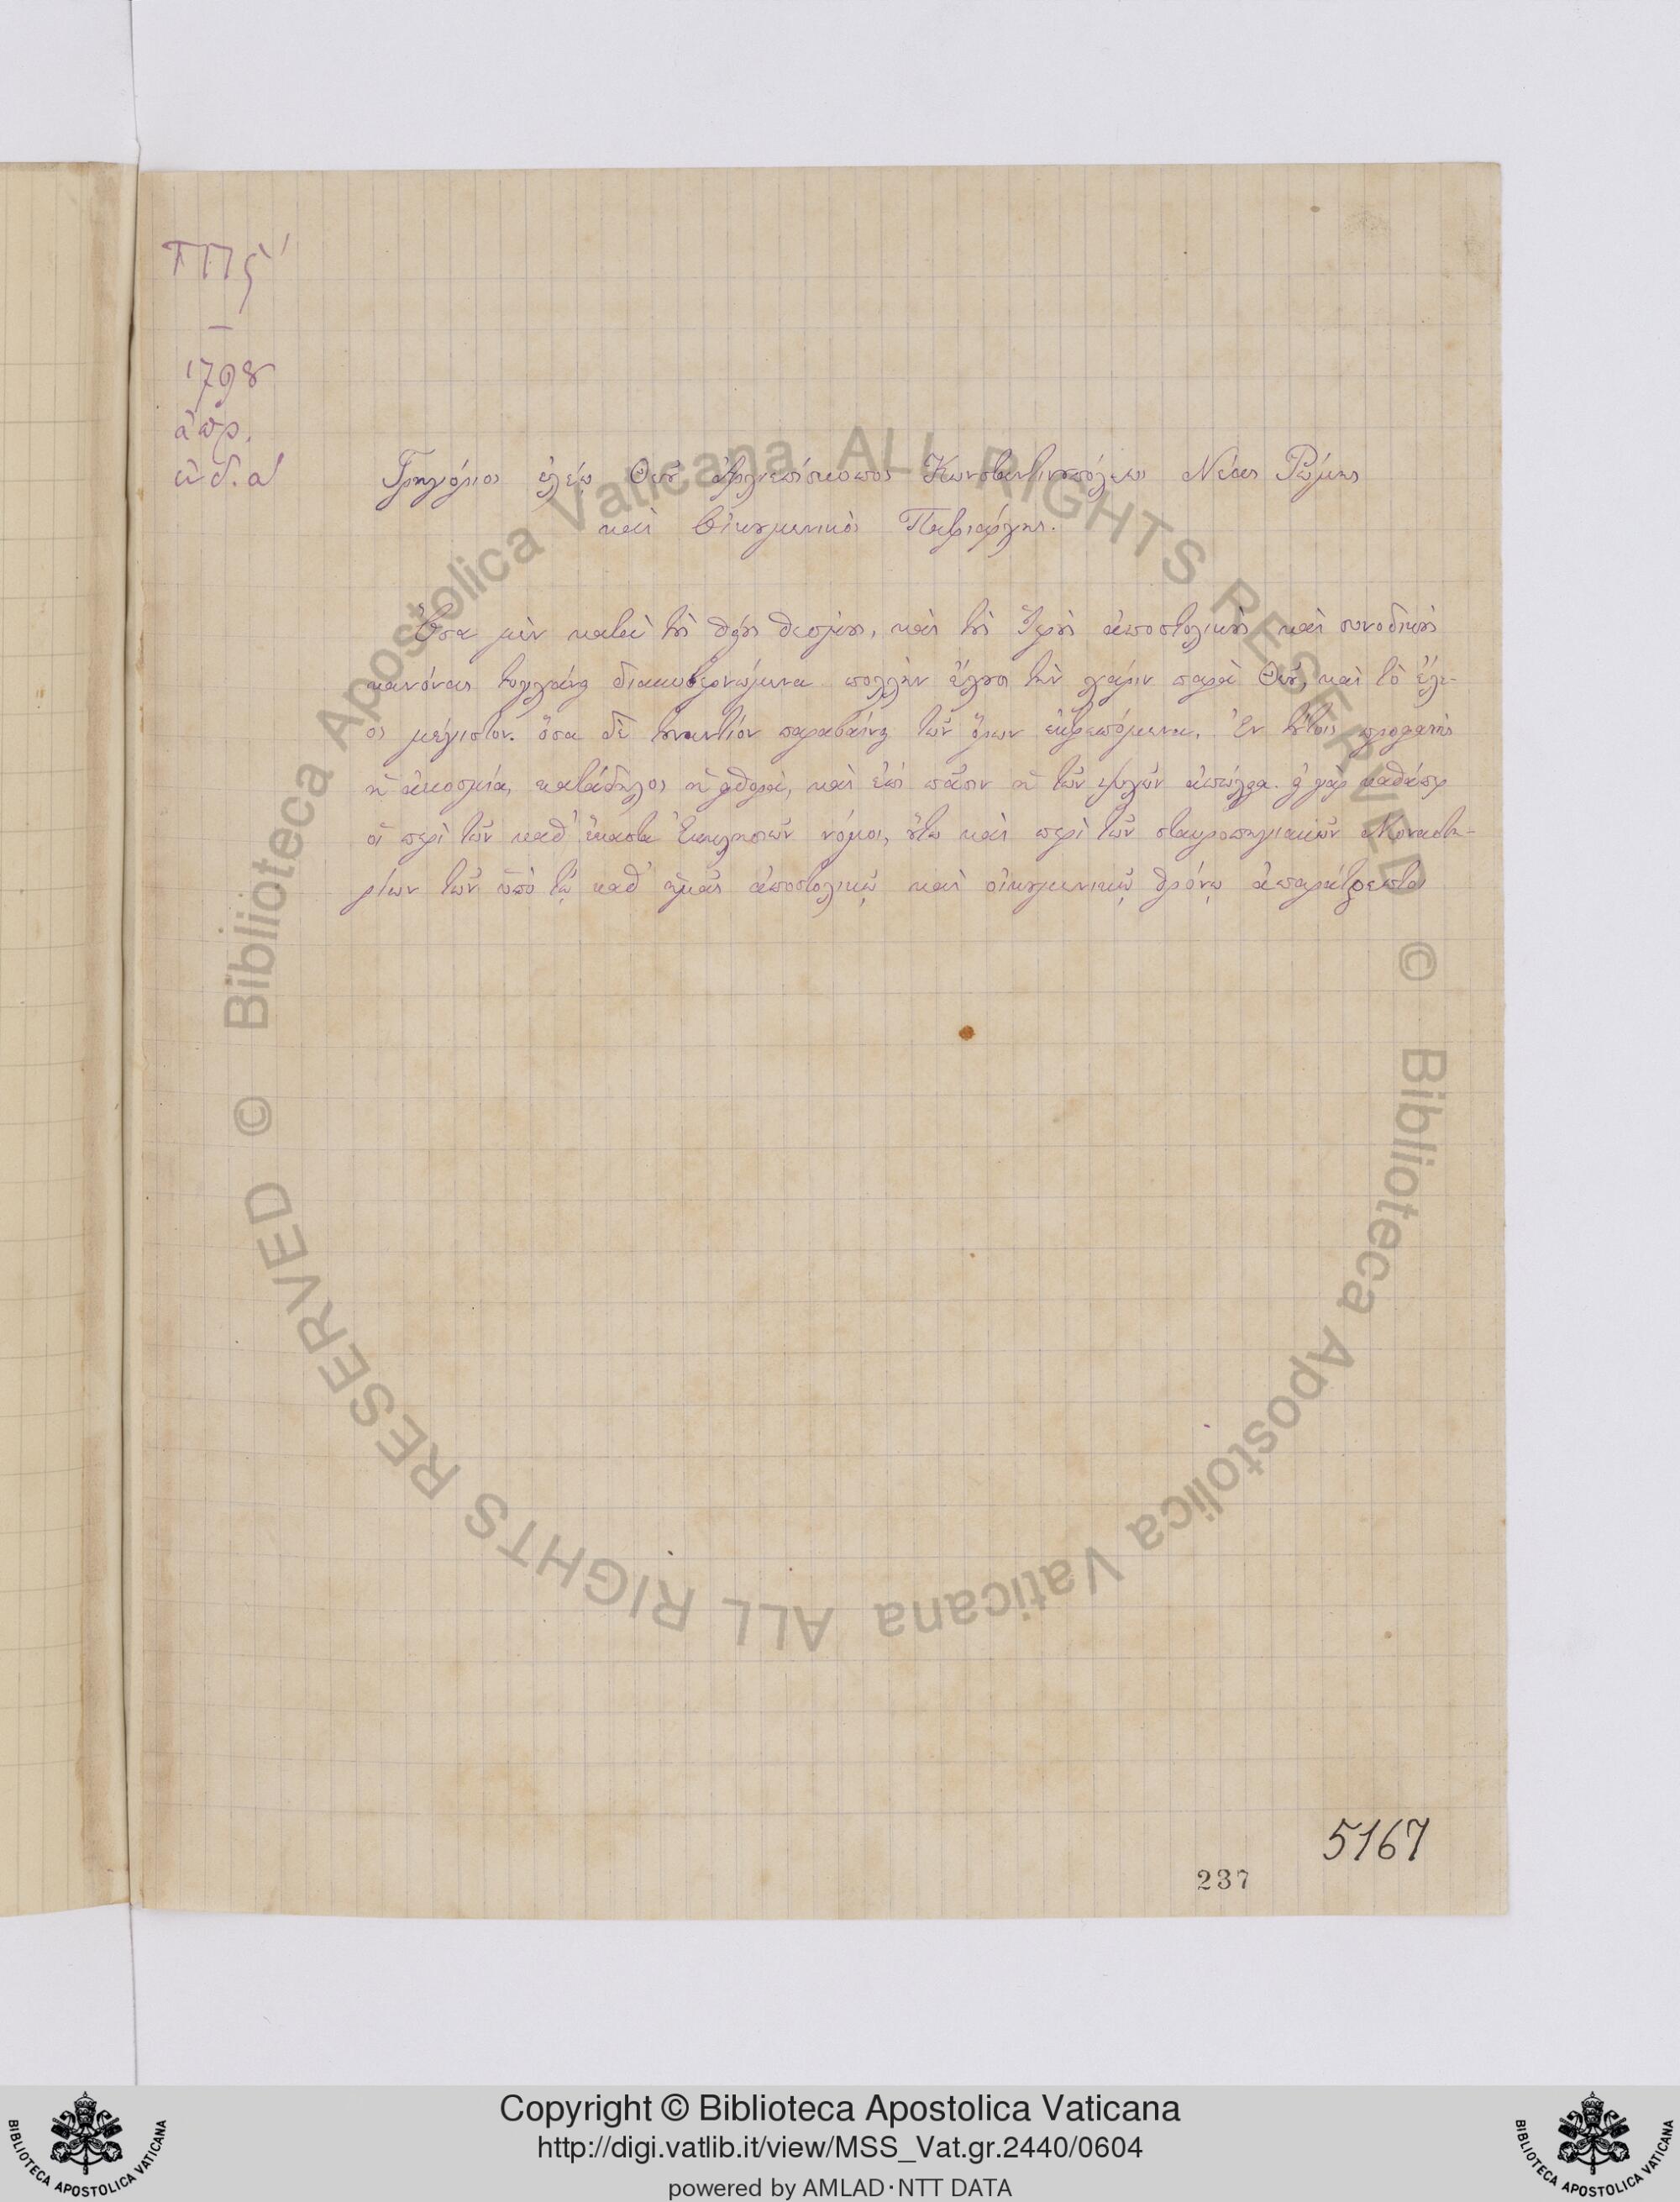 ΤΠϛ´
–
1798
ἀπρ.
ἰνδ. α´
Γρηγόριος ἐλέῳ Θεοῦ Ἀρχιεπίσκοπος Κωνσταντινουπόλεως Νέας Ῥώμης
καὶ Οἰκουμενικὸς Πατριάρχης.
Ὅσα μὲν κατὰ τοὺς θείους θεσμούς, καὶ τοὺς Ἱεροὺς ἀποστολικοὺς καὶ συνοδικοὺς
κανόνας τυγχάνει διακυβερνώμενα πολλὴν ἔχουσι τὴν χάριν παρὰ Θεοῦ, καὶ τὸ ἔλε-
ος μέγιστον. ὅσα δὲ τοὐναντίον παραβαίνει τῶν ὅρων ἐκτρεπόμενα. Ἐν τούτοις προφανὴς
ἡ ἀκοσμία, κατάδηλος ἡ φθορὰ, καὶ ἐπὶ πᾶσιν ἡ τῶν ψυχῶν ἀπώλεια. οὐ γὰρ καθάπερ
οἱ περὶ τῶν καθ᾽ ἕκαστα Ἐκκλησιῶν νόμοι, οὕτω καὶ περὶ τῶν σταυροπηγιακῶν Μοναστη-
ρίων τῶν ὑπὸ τῷ καθ᾽ ἡμᾶς ἀποστολικῷ καὶ οἰκουμενικῷ θρόνῳ ἀπαράτρεπτοι
5167
237
© Biblioteca Apostolica Vaticana ALL RIGHTS RESERVED
© Biblioteca Apostolica Vaticana ALL RIGHTS RESERVED
Copyright © Biblioteca Apostolica Vaticana
http://digi.vatlib.it/view/MSS_Vat.gr.2440/0604
powered by AMLAD·NTT DATA
BIBLIOTECA APOSTOLICA VATICANA
BIBLIOTECA APOSTOLICA VATICANA